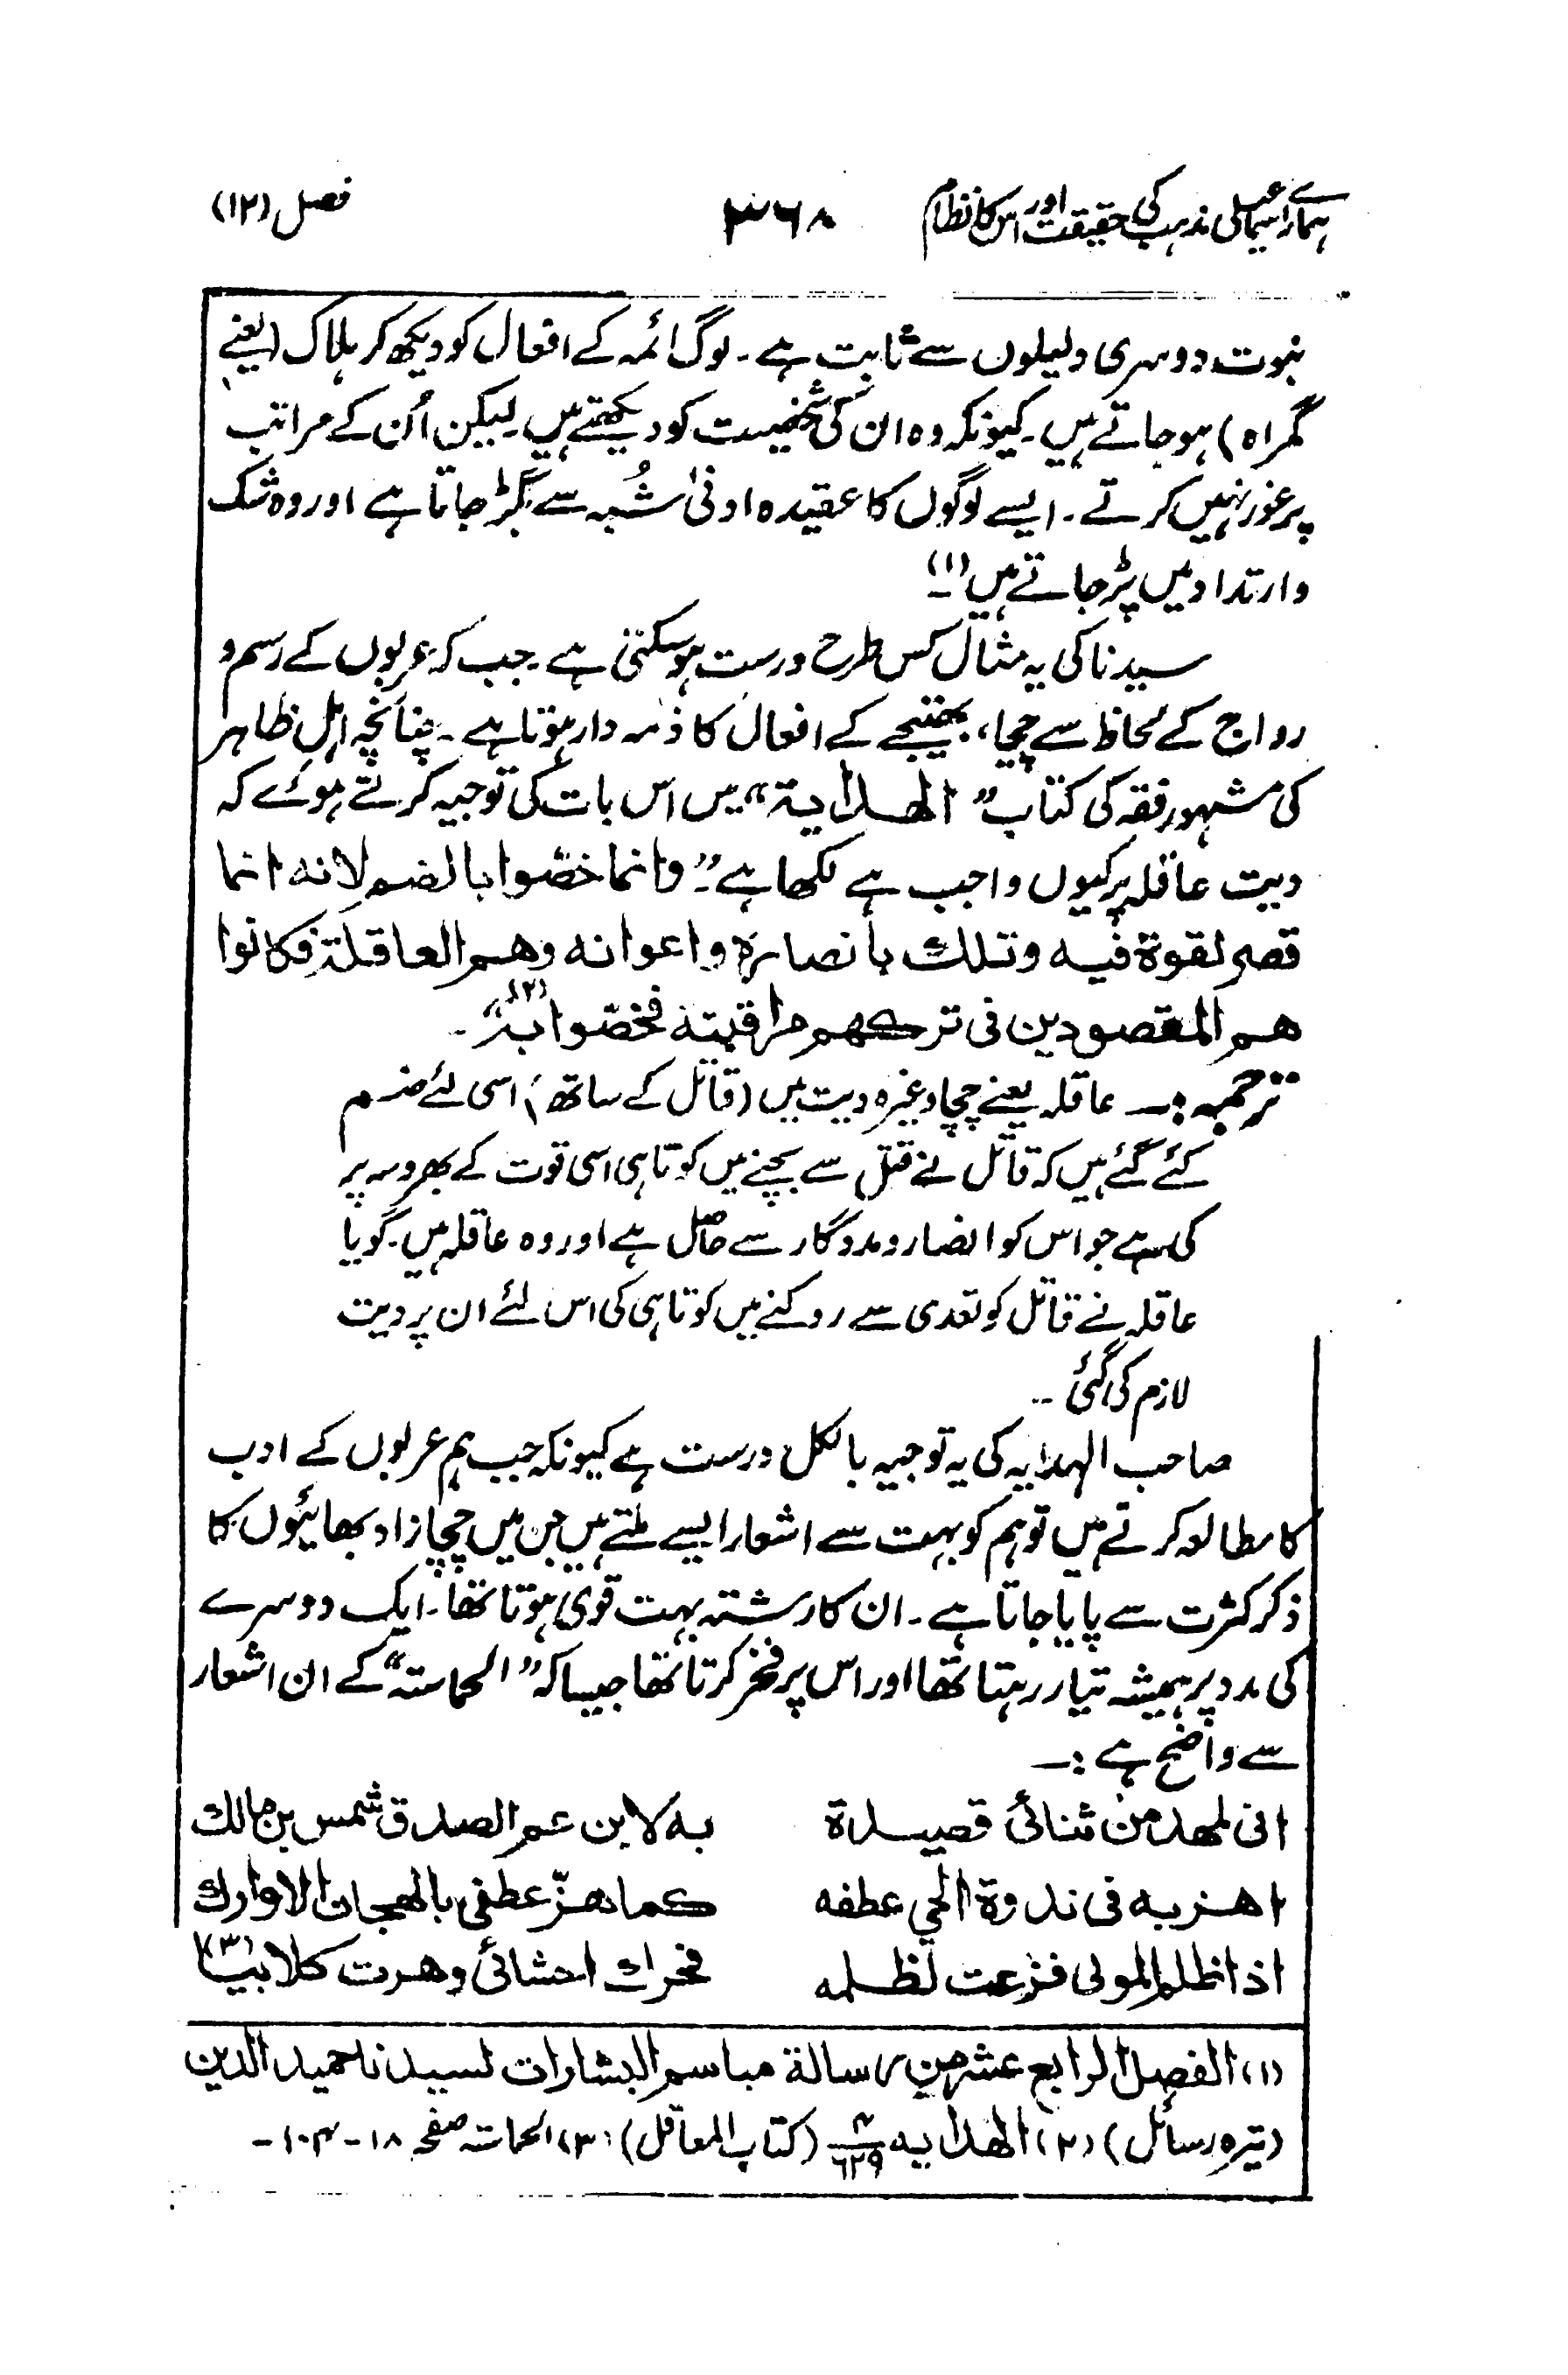 ہمارے اسماعیلی مذہب کی حقیقت اور اس کا نظام ۳۶۸ فصل (۱۲)
نبوت دوسری دلیلوں سے ثابت ہے ۔ لوگ ائمہ کے افعال کو دیکھ کر ہلاک (یعنے
گمراہ) ہو جاتے ہیں ۔ کیونکہ وہ ان کی شخصیت کو دیکھتے ہیں ۔ لیکن اُن کے مراتب
پر غور نہیں کرتے ۔ ایسے لوگوں کا عقیدہ ادنیٰ شُبہ سے بگڑ جاتا ہے اور وہ شک
وارتداد میں پڑ جاتے ہیں (۱)۔
سیدنا کی یہ مثال کس طرح درست ہو سکتی ہے ۔ جب کہ عربوں کے رسم و
رواج کے لحاظ سے چچا، بھتیجے کے افعال کا ذمہ دار ہوتا ہے ۔ چنانچہ اہلِ ظاہر
کی مشہور فقہ کی کتاب "الھدایۃ" میں اس بات کی توجیہ کرتے ہوئے کہ
دیت عاقلہ پر کیوں واجب ہے لکھا ہے :۔ "وانما خصّوا بالضم لانہ انما
قصر لقوۃ فیہ وتلك بأنصارہ واعوانہ وھم العاقلۃ فکانوا
ھم المقصودین فی ترکھم مراقبتہ فخصّوا بہ" (۲)۔
ترجمہ :۔ عاقلہ یعنے چچا وغیرہ دیت میں (قاتل کے ساتھ) اسی لئے ضم
کئے گئے ہیں کہ قاتل نے قتل سے بچنے میں کوتاہی اسی قوت کے بھروسہ پر
کی ہے جو اس کو انصار و مددگار سے حاصل ہے اور وہ عاقلہ ہیں ۔ گویا
عاقلہ نے قاتل کو تعدی سے روکنے میں کوتاہی کی اس لئے ان پر دیت
لازم کی گئی ۔
صاحب الہدایہ کی یہ توجیہ بالکل درست ہے کیونکہ جب ہم عربوں کے ادب
کا مطالعہ کرتے ہیں تو ہم کو بہت سے اشعار ایسے ملتے ہیں جن میں چچا زاد بھائیوں کا
ذکر کثرت سے پایا جاتا ہے ۔ ان کا رشتہ بہت قوی ہوتا تھا ۔ ایک دوسرے
کی مدد پر ہمیشہ تیار رہتا تھا اور اس پر فخر کرتا تھا جیسا کہ "الحماستہ" کے ان اشعار
سے واضح ہے :۔
انی لمھد من ثنائی قصیدۃ بہ لابن عم الصدق شمس بن مالك
اھز بہ فی ندوۃ الحي عطفہ کما ھزّ عطفی بالھجان الاوارك
اذا ظلم المولی فزعت لظلمہ فحرك احشائی وھرت کلابیا (۳)
(۱) الفصل الرابع عشر من رسالة مباسم البشارات لسیدنا حمید الدین
(تیرہ رسائل) (۲) الھدایہ ۴/۶۲۹ (کتاب المعاقل) (۳) الحماستہ صفحہ ۱۸ - ۱۰۴ -